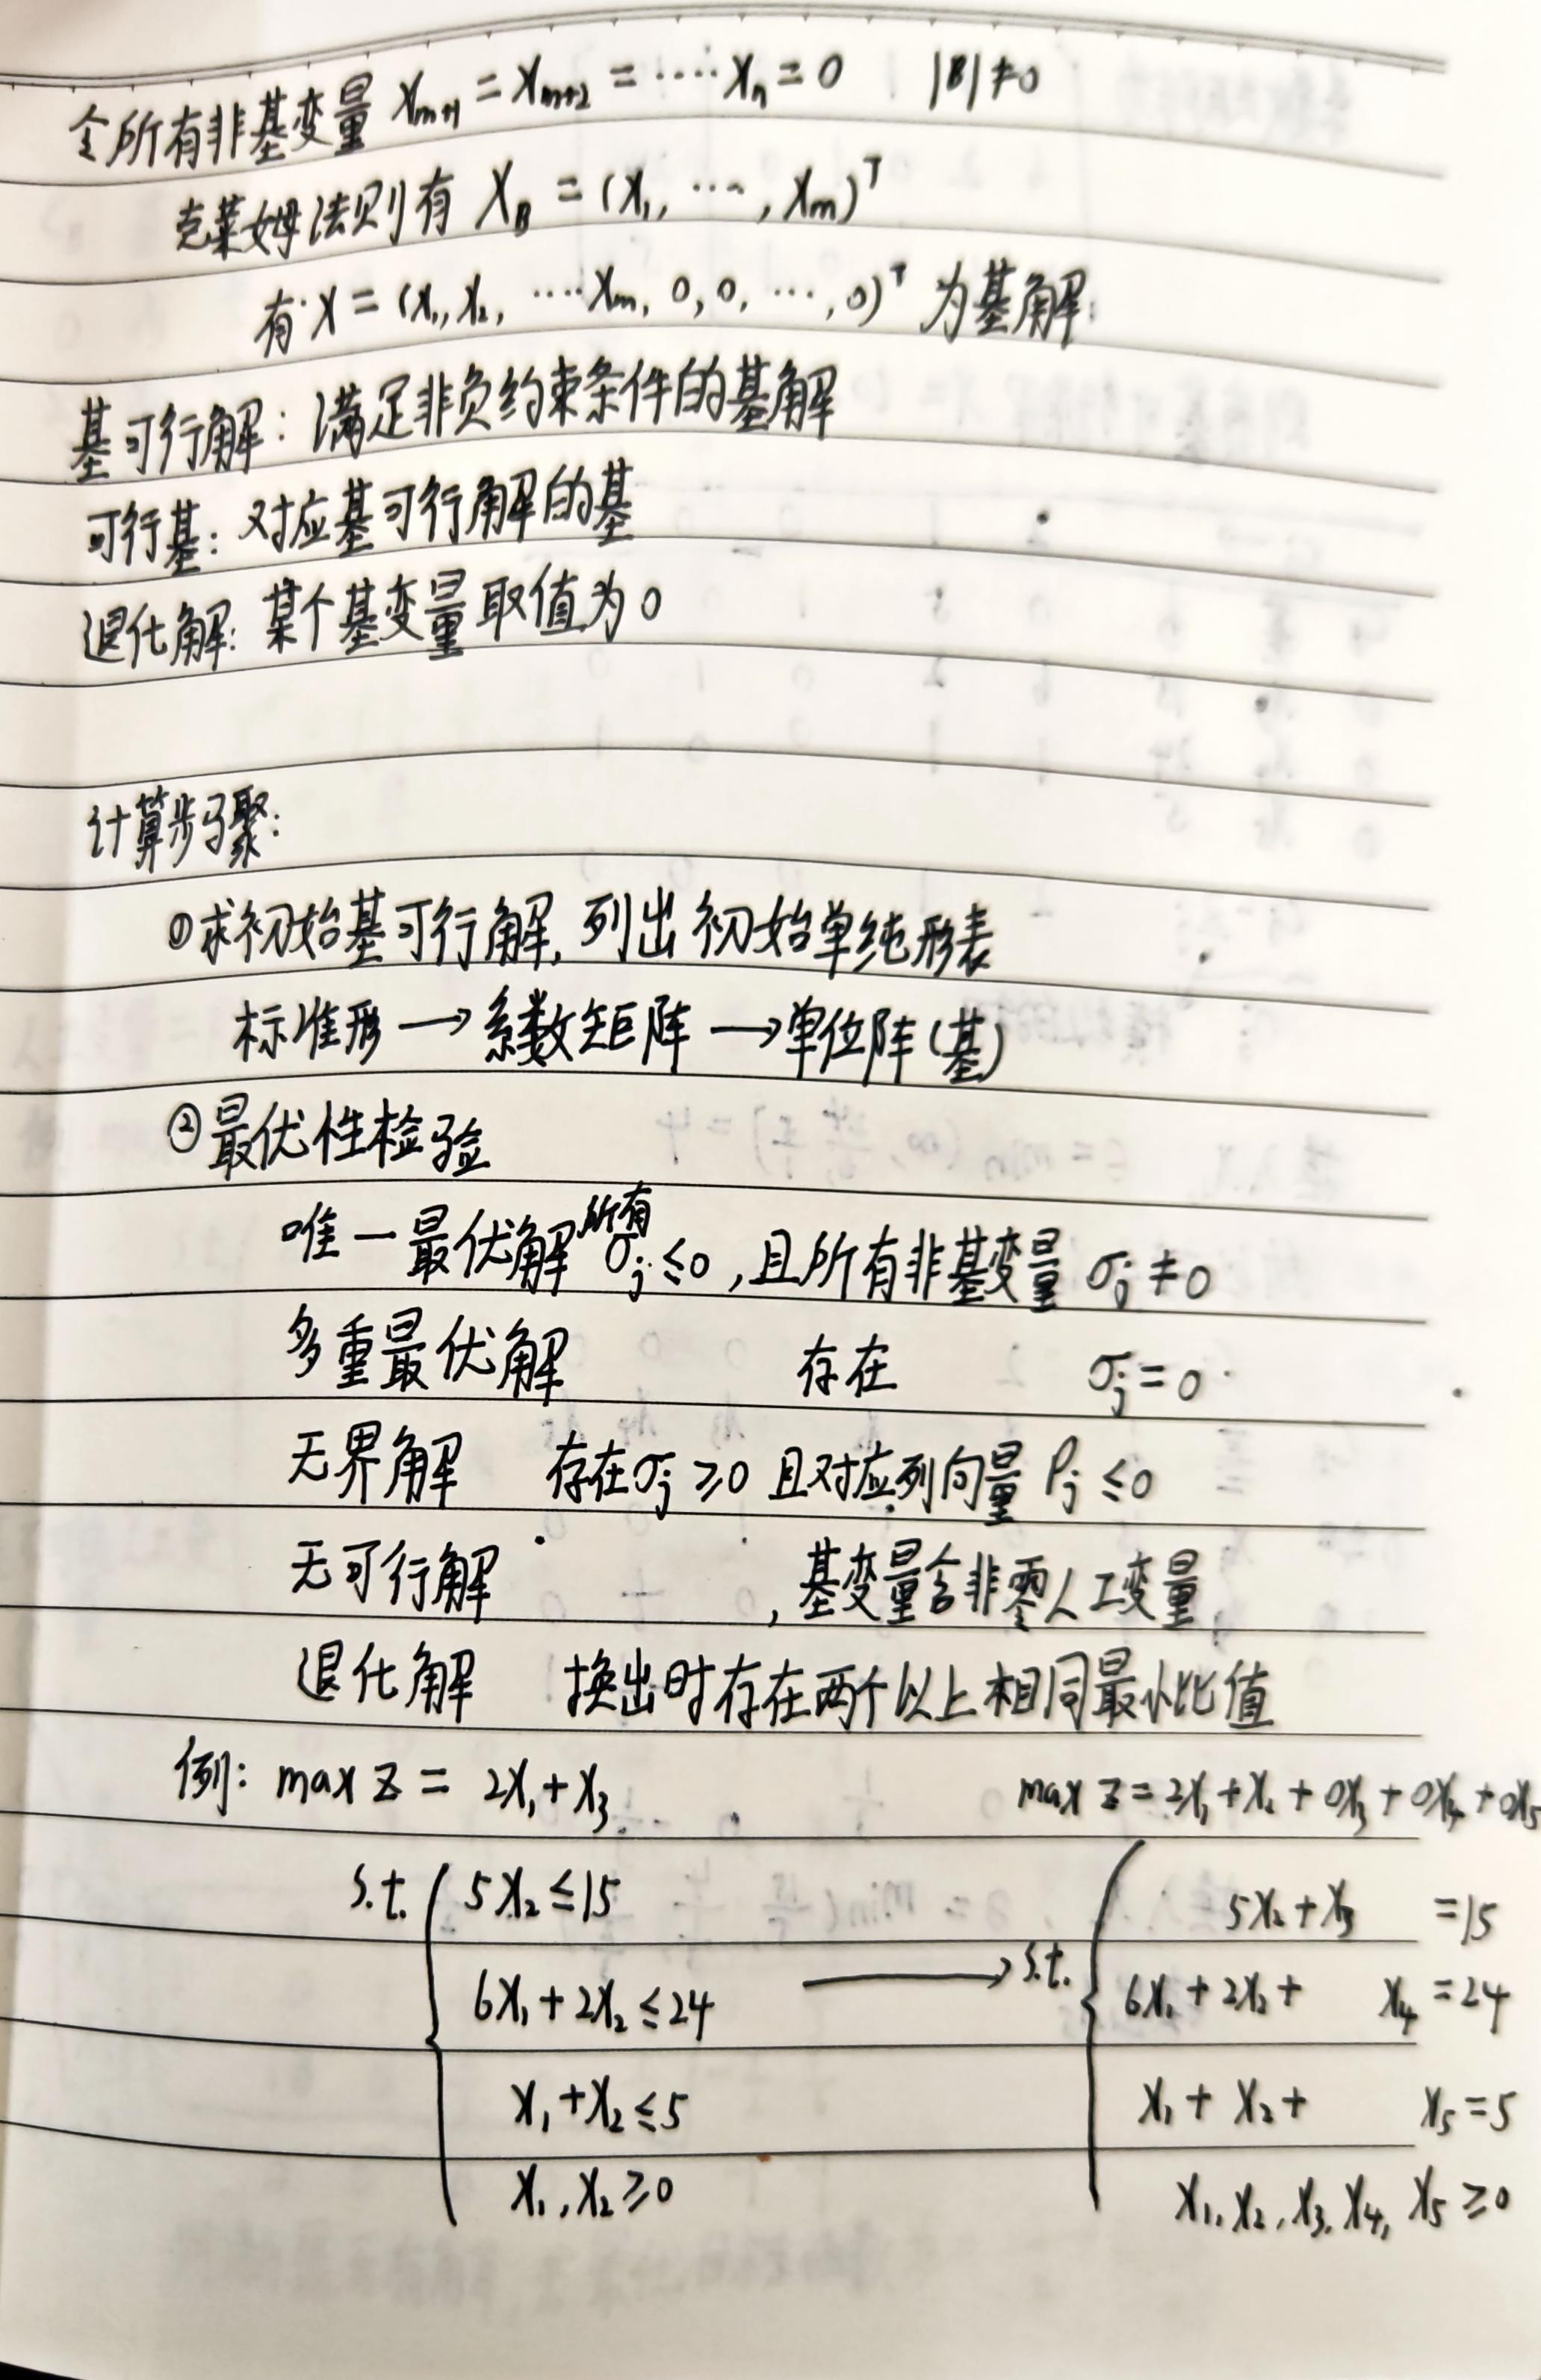 令所有非基变量 Xm+1 = Xm+2 = ···· Xn = 0 |B| ≠ 0
克莱姆法则有 XB = (X1, ···, Xm)^T
有 X = (X1, X2, ····Xm, 0, 0, ···, 0)^T 为基解
基可行解: 满足非负约束条件的基解
可行基: 对应基可行解的基
退化解: 某个基变量取值为0
计算步骤:
①求初始基可行解, 列出初始单纯形表
标准形 → 系数矩阵 → 单位阵(基)
②最优性检验
唯一最优解 所有 σj ≤ 0, 且所有非基变量 σj ≠ 0
多重最优解 存在 σj = 0
无界解 存在σj ≥ 0 且对应列向量 Pj ≤ 0
无可行解 , 基变量含非零人工变量
退化解 换出时存在两个以上相同最小比值
例: max Z = 2X1 + X3 max Z = 2X1 + X2 + 0X3 + 0X4 + 0X5
s.t. { 5X2 ≤ 15 → s.t. { 5X2 + X3 = 15
6X1 + 2X2 ≤ 24 6X1 + 2X2 + X4 = 24
X1 + X2 ≤ 5 X1 + X2 + X5 = 5
X1, X2 ≥ 0 X1, X2, X3, X4, X5 ≥ 0